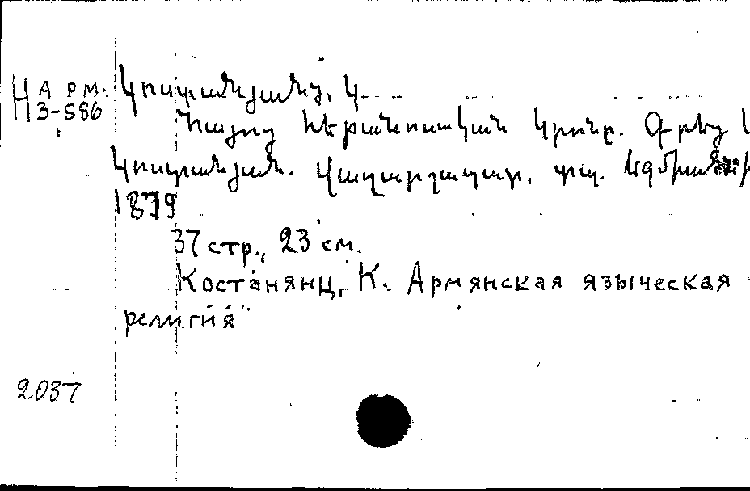 Н АРМ. Կոստանյանց, Կ.
3-586
Հայոց հեթանոսական կրոնը. Գրեց Կ
Կոստանյան. Վաղարշապատ, տպ. Էջմիածնի
1879
37 стр., 23 см.
Костанянц, К. Армянская языческая
религия
2037